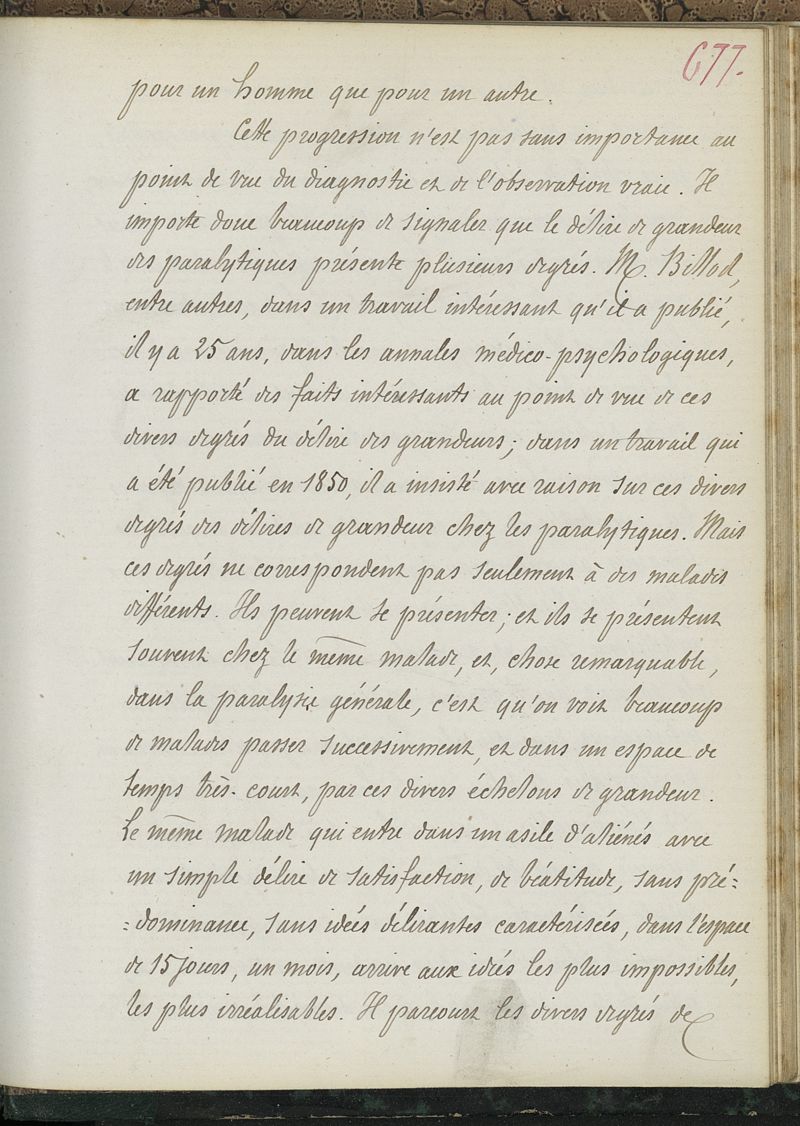 677.
pour un homme que pour un autre.
Cette progression n'est pas sans importance au
point de vue du diagnostic et de l'observation vraie. Il
importe donc beaucoup de signaler que le délire de grandeur
des paralytiques présente plusieurs degrés. M. Billod,
entre autres, dans un travail intéressant qu'il a publié,
il y a 25 ans, dans les annales médico-psychologiques,
a rapporté des faits intéressants au point de vue de ces
divers degrés du délire des grandeurs; dans un travail qui
a été publié en 1850, il a insisté avec raison sur ces divers
degrés des délires de grandeur chez les paralytiques. Mais
ces degrés ne correspondent pas seulement à des malades
différents. Ils peuvent se présenter; et ils se présentent
souvent chez le même malade, et, chose remarquable,
dans la paralysie générale, c'est qu'on voit beaucoup
de malades passer successivement, et dans un espace de
temps très-court, par ces divers échelons de grandeur.
Le même malade qui entre dans un asile d'aliénés avec
un simple délire de satisfaction, de béatitude, sans pré=
=dominance, sans idées délirantes caractérisées, dans l'espace
de 15 jours, un mois, arrive aux idées les plus impossibles,
les plus irréalisables. Il parcourt les divers degrés de